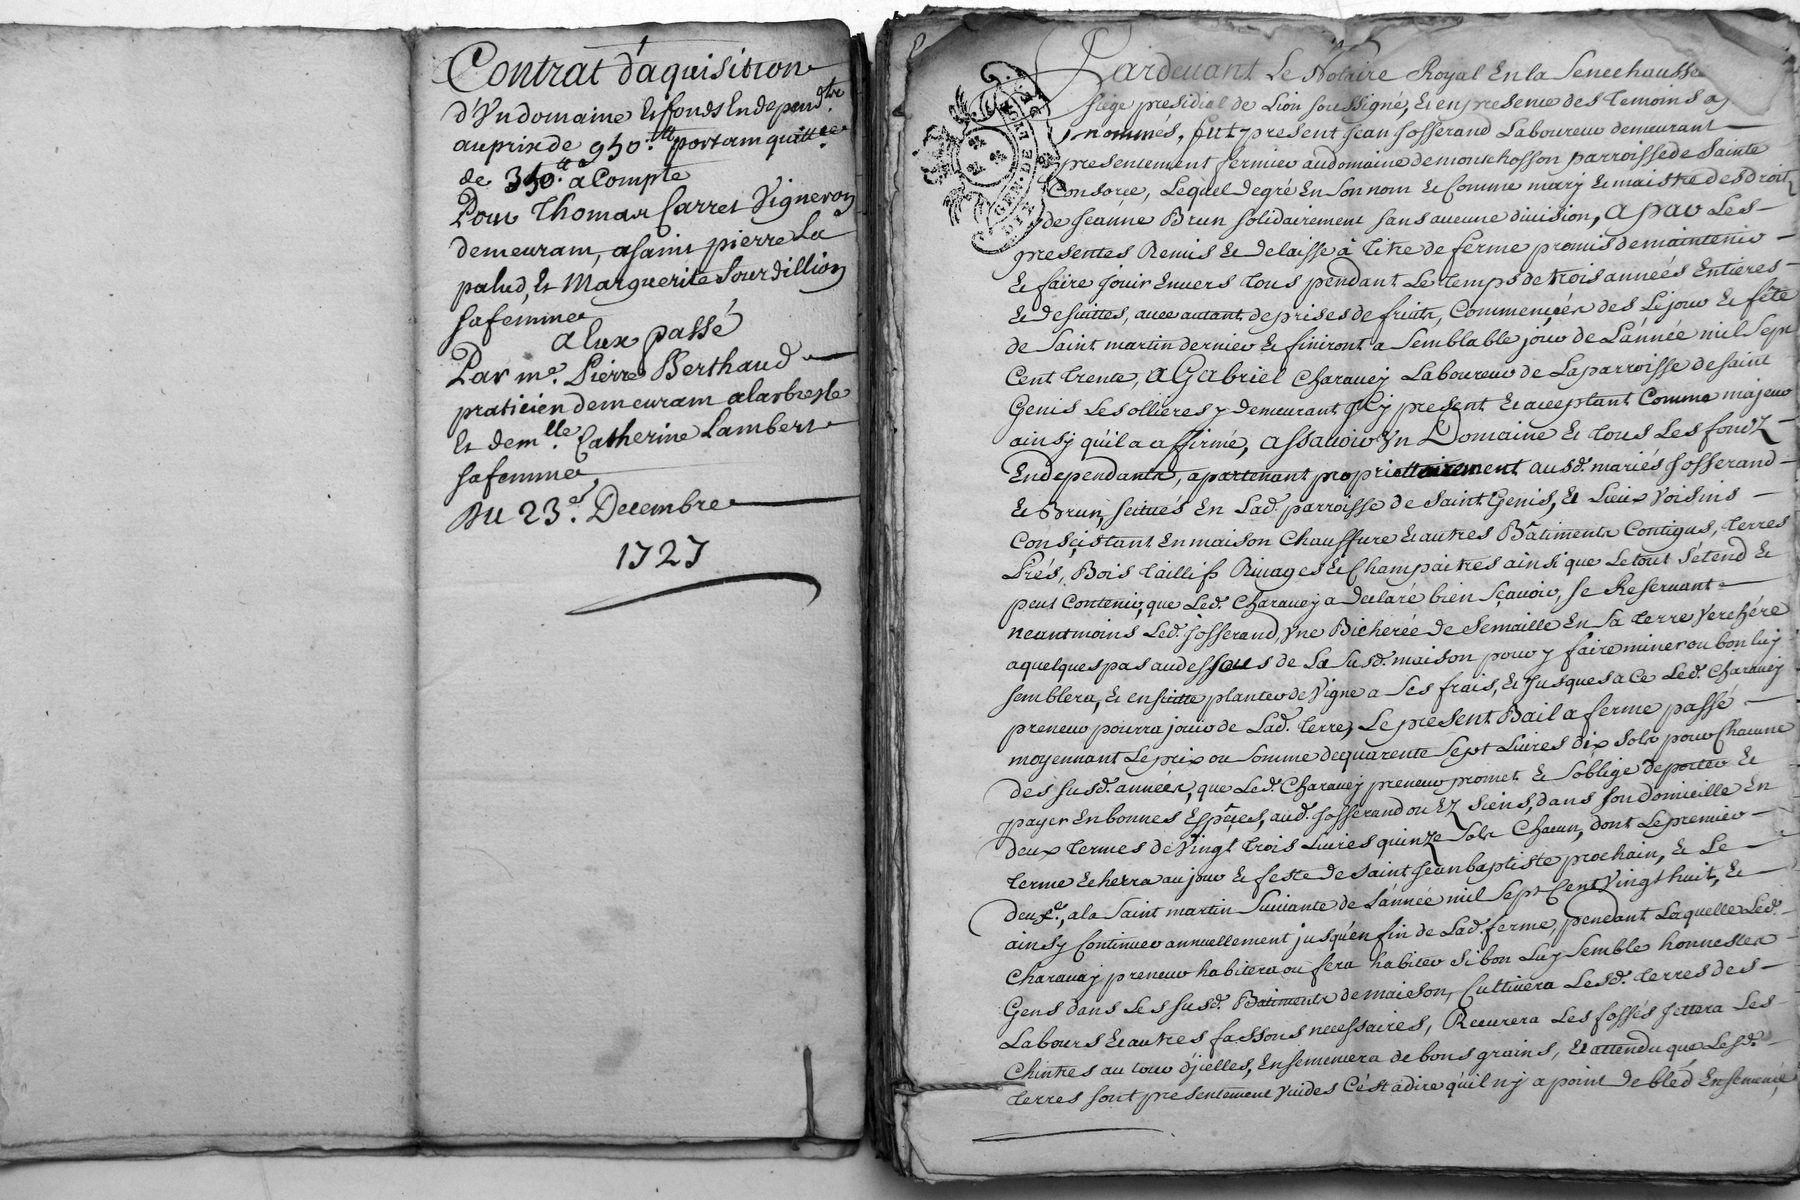 Contrat d'aquisition
d'Vn domaine & fonds En depend.tz
au prix de 950.tt portam quitt.ce
de 350.tt a Compte
Pour Thomas Carret Vigneron
demeuram, a saint pierre La
palud, Et Marguerite Sourdillion
sa femme
a Eux passé
Par m.e Pierre Berthaud
praticien demeuram a larbresle
Et dem.lle Catherine Lambert
sa femme
Du 23.e Decembre
1727
Pardevant Le Notaire Royal En la Senechaussé
siége presidial de Lion soussigné, & en presence des temoins a
nommés, fut present Jean Josserand Laboureur demeurant
presentement fermier au domaine de monchosson parroisse de Sainte
Consorce, Lequel degré En son nom & Comme mary & maistre des droits
de Jeanne Brun solidairement sans aucune division, a par Les
presentes Remis & delaisse à titre de ferme promis de maintenir
& faire jouir Envers tous pendant Le temps de trois années Entieres
& de suittes, avec autant de prises de fruits, Commencées des Le jour & féte
de Saint martin dernier & finiront a semblable jour de L'année mil Sept
Cent trente, A Gabriel Charavey Laboureur de La parroisse de saint
Genis Les ollieres y demeurant Icy present & acceptant Comme majeur
ainsy qu'il a affirmé, assavoir Vn Domaine & tous Les fondz
En dependants, apartenant proprietairement ausd. mariés Josserand
& Brun, scitués En Lad. parroisse de Saint Genis, & Lieux voisins
Conscistant En maison Chauffure & autres Bâtiments Contigus, terres
Prés, Bois taillifs Rivages & Champaitres ainsi que Le tout s'étend &
peut Contenir, que Led. Charavey a declaré bien sçavoir, se Reservant
neantmoins Led. Josserand, Vne Bicherée de semaille En sa terre verchére
a quelques pas au dessous de La susd. maison pour y faire miner ou bon luy
semblera, & en suitte planter de vigne a ses frais, & jusques a ce Led. Charavey
preneur pourra jouir de Lad. terre, Le present Bail a ferme passé
moyennant Le prix ou somme de quarente sept Livres dix sols pour Chacune
des susd. années, que Led. Charavey preneur promet & s'oblige de porter &
payer En bonnes Espéces, aud. Josserand ou Ez siens, dans son domicille En
deux termes de Vingt trois Livres quinze sols Chacun, dont Le premier
terme Echerra au jour & feste de saint Jean baptiste prochain, & Le
deux.e, a la Saint martin Suivante de L'année mil Sept Cent Vingt huit, &
ainsy Continuer annuellement jusqu'en fin de Lad. ferme, pendant Laquelle Led.
Charavay preneur habitera ou fera habiter si bon Luy semble honnestes
Gens dans Les susd. Bâtiments de maison, Cultivera Lesd. terres des
Labours & autres fassons necessaires, Recurera Les fossés jettera Les
Chintres au tour d'jcelles, Ensemencera de bons grains, & attendu que Lesd.
terres sont presentement vuides C'est a dire qu'il n'y a point de bled Ensemencé,